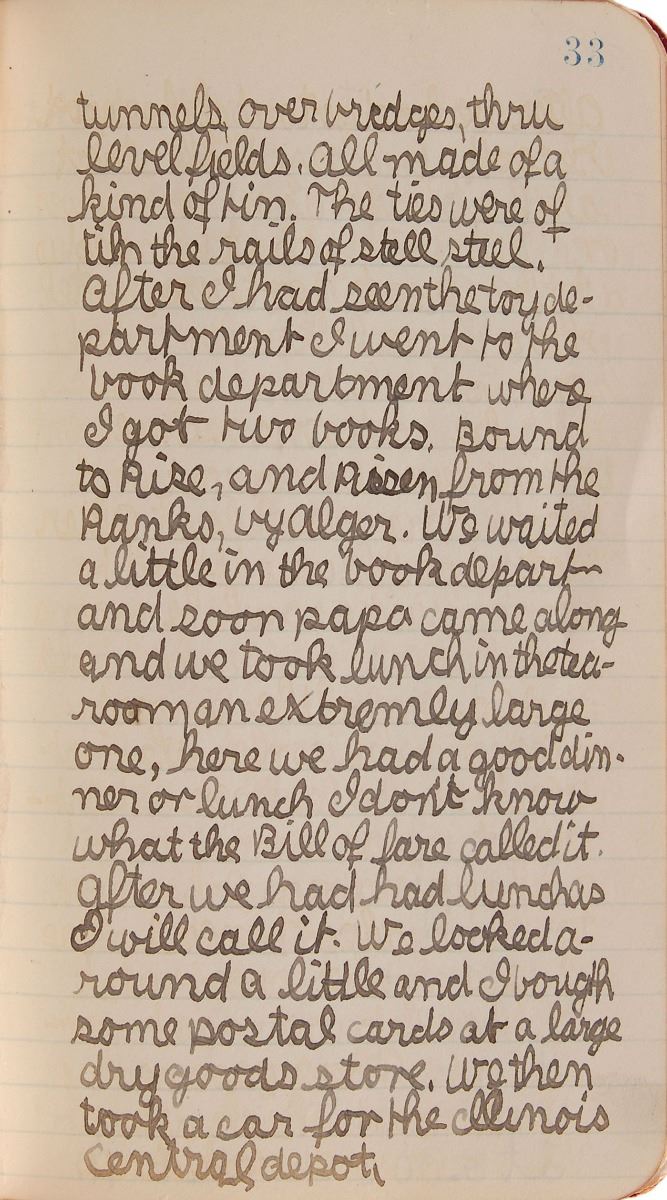 33
tunnels, over bridges, thru
level fields. All made of a
kind of tin. The ties were of
tin the rails of stell steel.
After I had seen the toy de-
partment I went to the
book department where
I got two books. Bound
to Rise, and Risen from the
Ranks, by Alger. We waited
a little in the book depart-
and soon papa came along
and we took lunch in the tea-
room an extremly large
one, here we had a good din-
ner or lunch I don't know
what the Bill of fare called it.
After we had had lunch as
I will call it. We looked a-
round a little and I bough
some postal cards at a large
dry goods store. We then
took a car for the Illinois
Central depot,